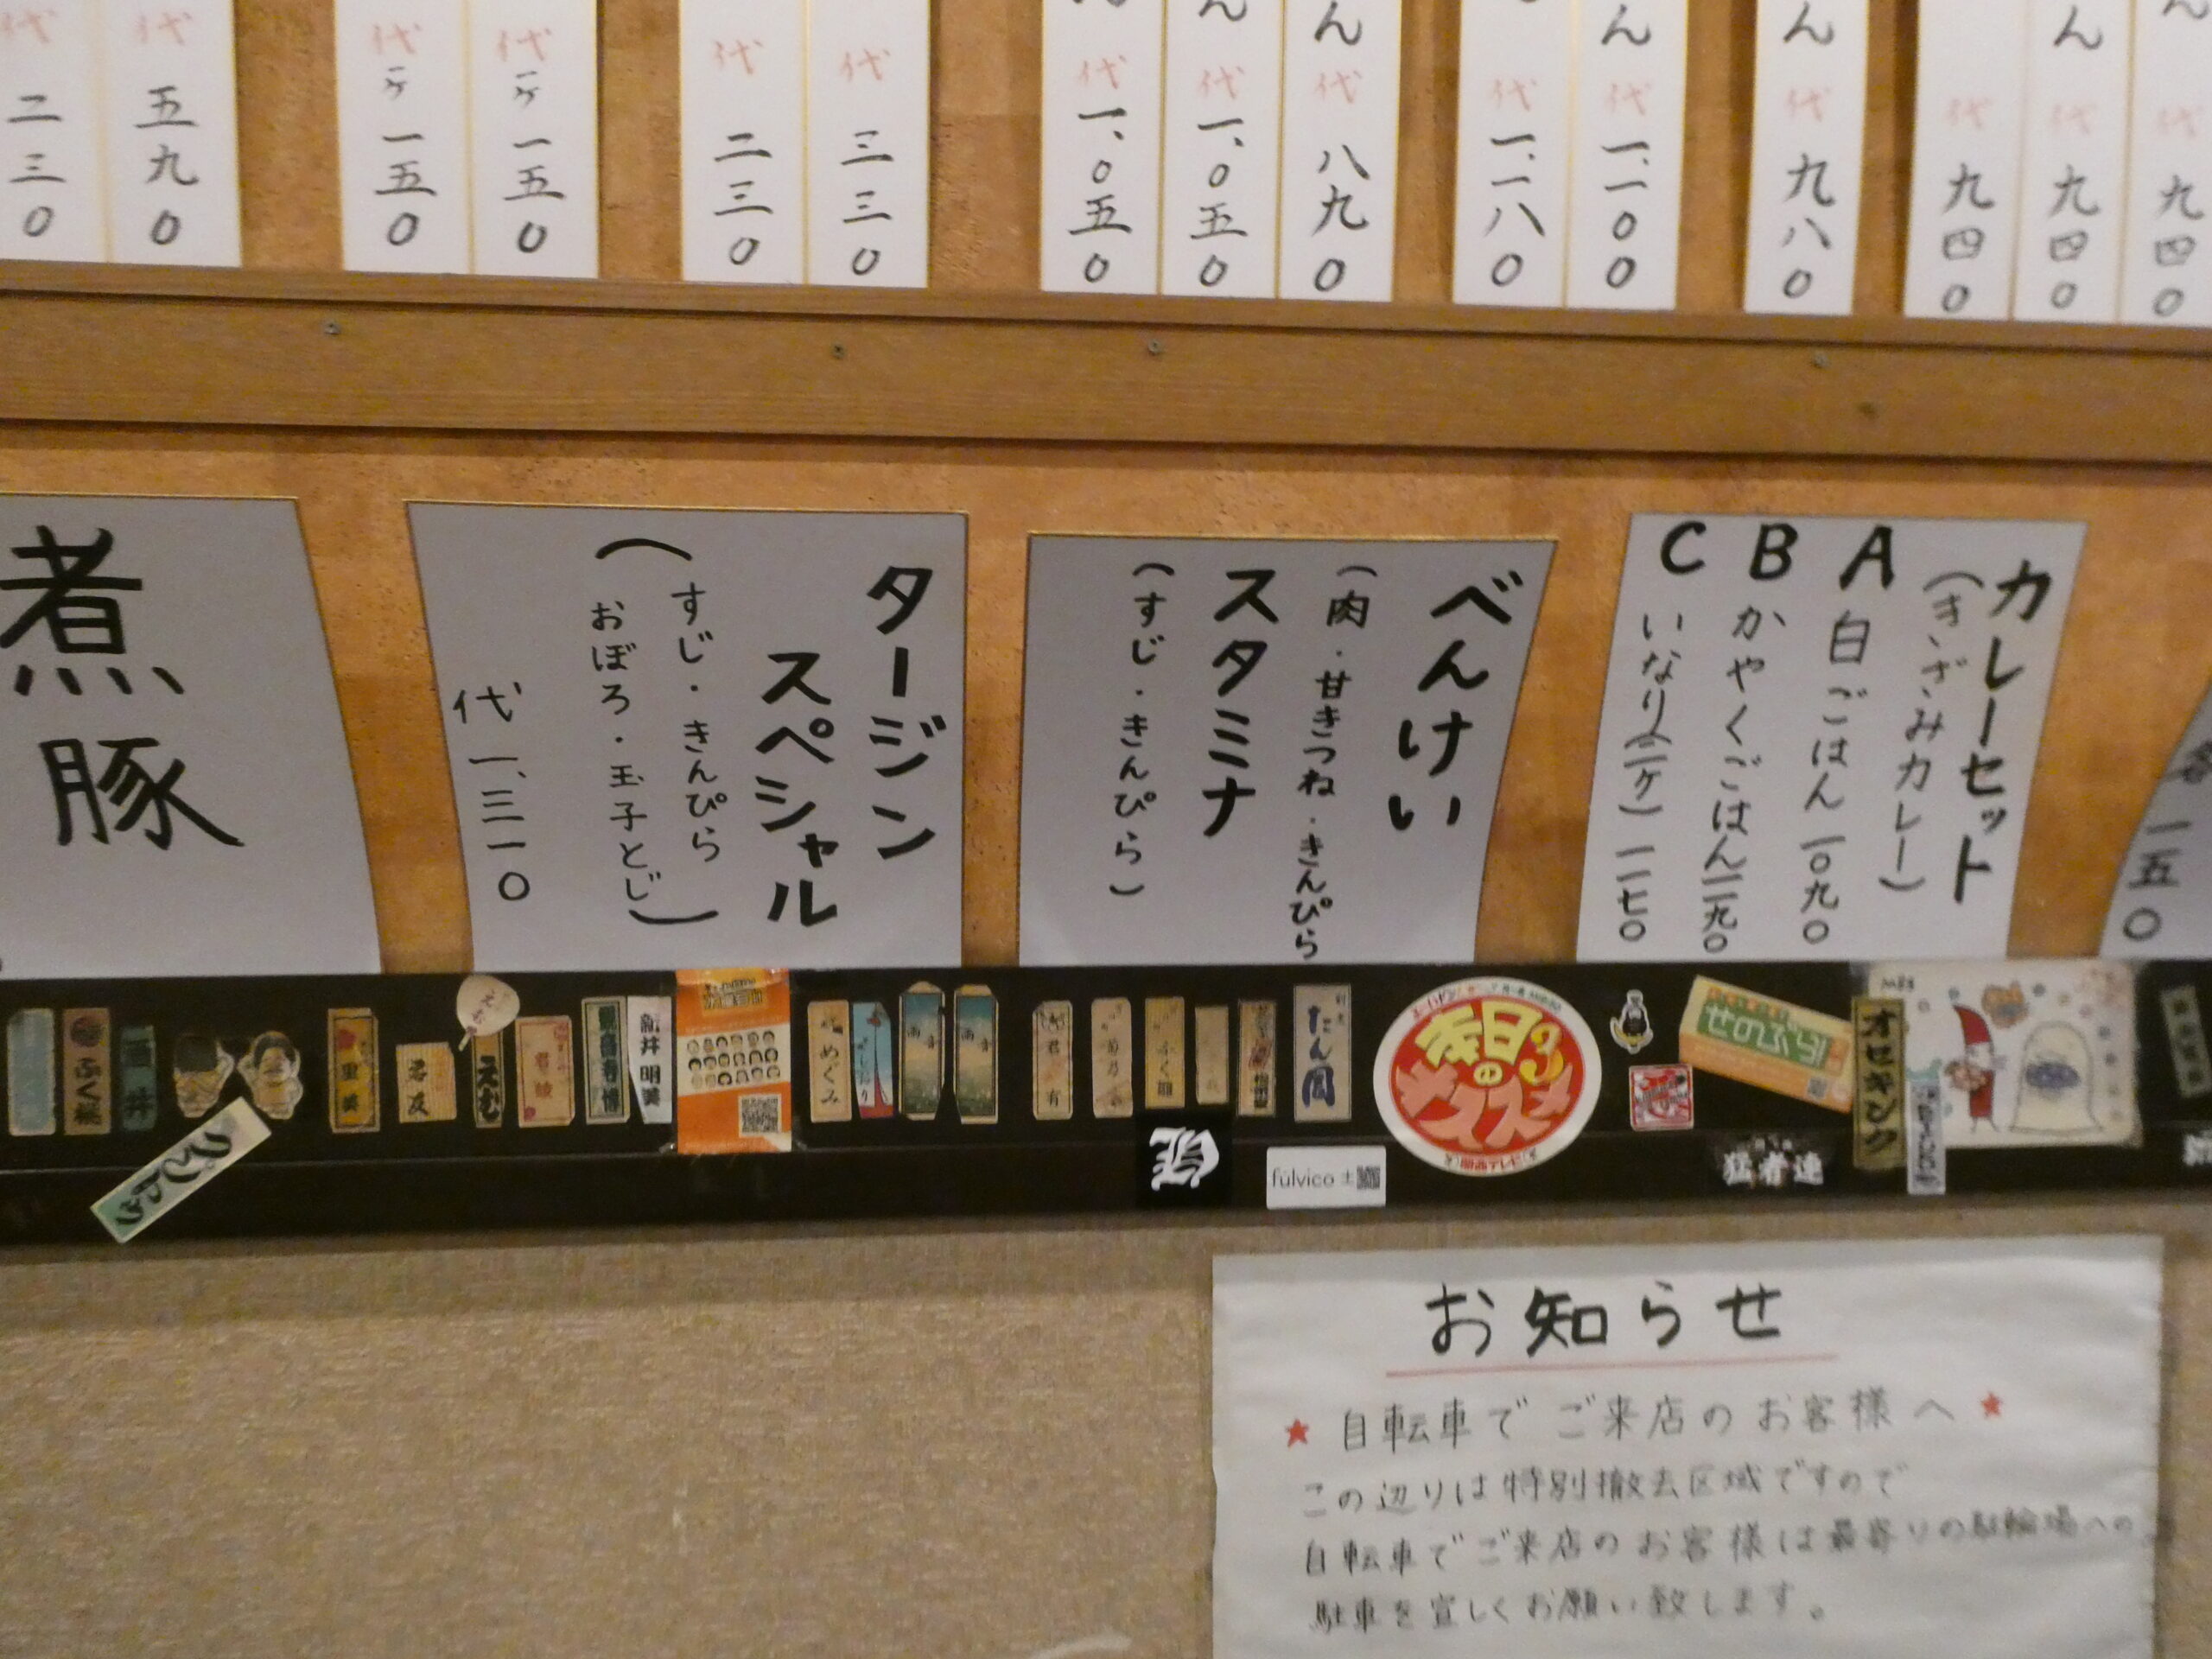 代 二三〇
代 五九〇
代 二ヶ 一五〇
代 二ヶ 一五〇
代 二三〇
代 三三〇
代 一、〇五〇
ん 代 一、〇五〇
ん 代 八九〇
代 一、一八〇
ん 代 一、一〇〇
ん 代 九八〇
代 九四〇
ん 代 九四〇
代 九四〇
カレーセット
(きざみカレー)
A 白ごはん 一〇九〇
B かやくごはん 一一九〇
C いなり(二ヶ) 一一七〇
一五〇
べんけい
(肉・甘きつね・きんぴら
スタミナ
(すじ・きんぴら)
タージン
スペシャル
(すじ・きんぴら
おぼろ・玉子とじ)
代 一、三一〇
煮豚
ふく龍
里美
君友
えむ
新井 明美
めぐみ
雨音
雨音
たん同
fulvico 土
せのぶら!
オセキング
猛者連
お知らせ
★ 自転車でご来店のお客様へ ★
この辺りは特別撤去区域ですので
自転車でご来店のお客様は最寄りの駐輪場への
駐車を宜しくお願い致します。